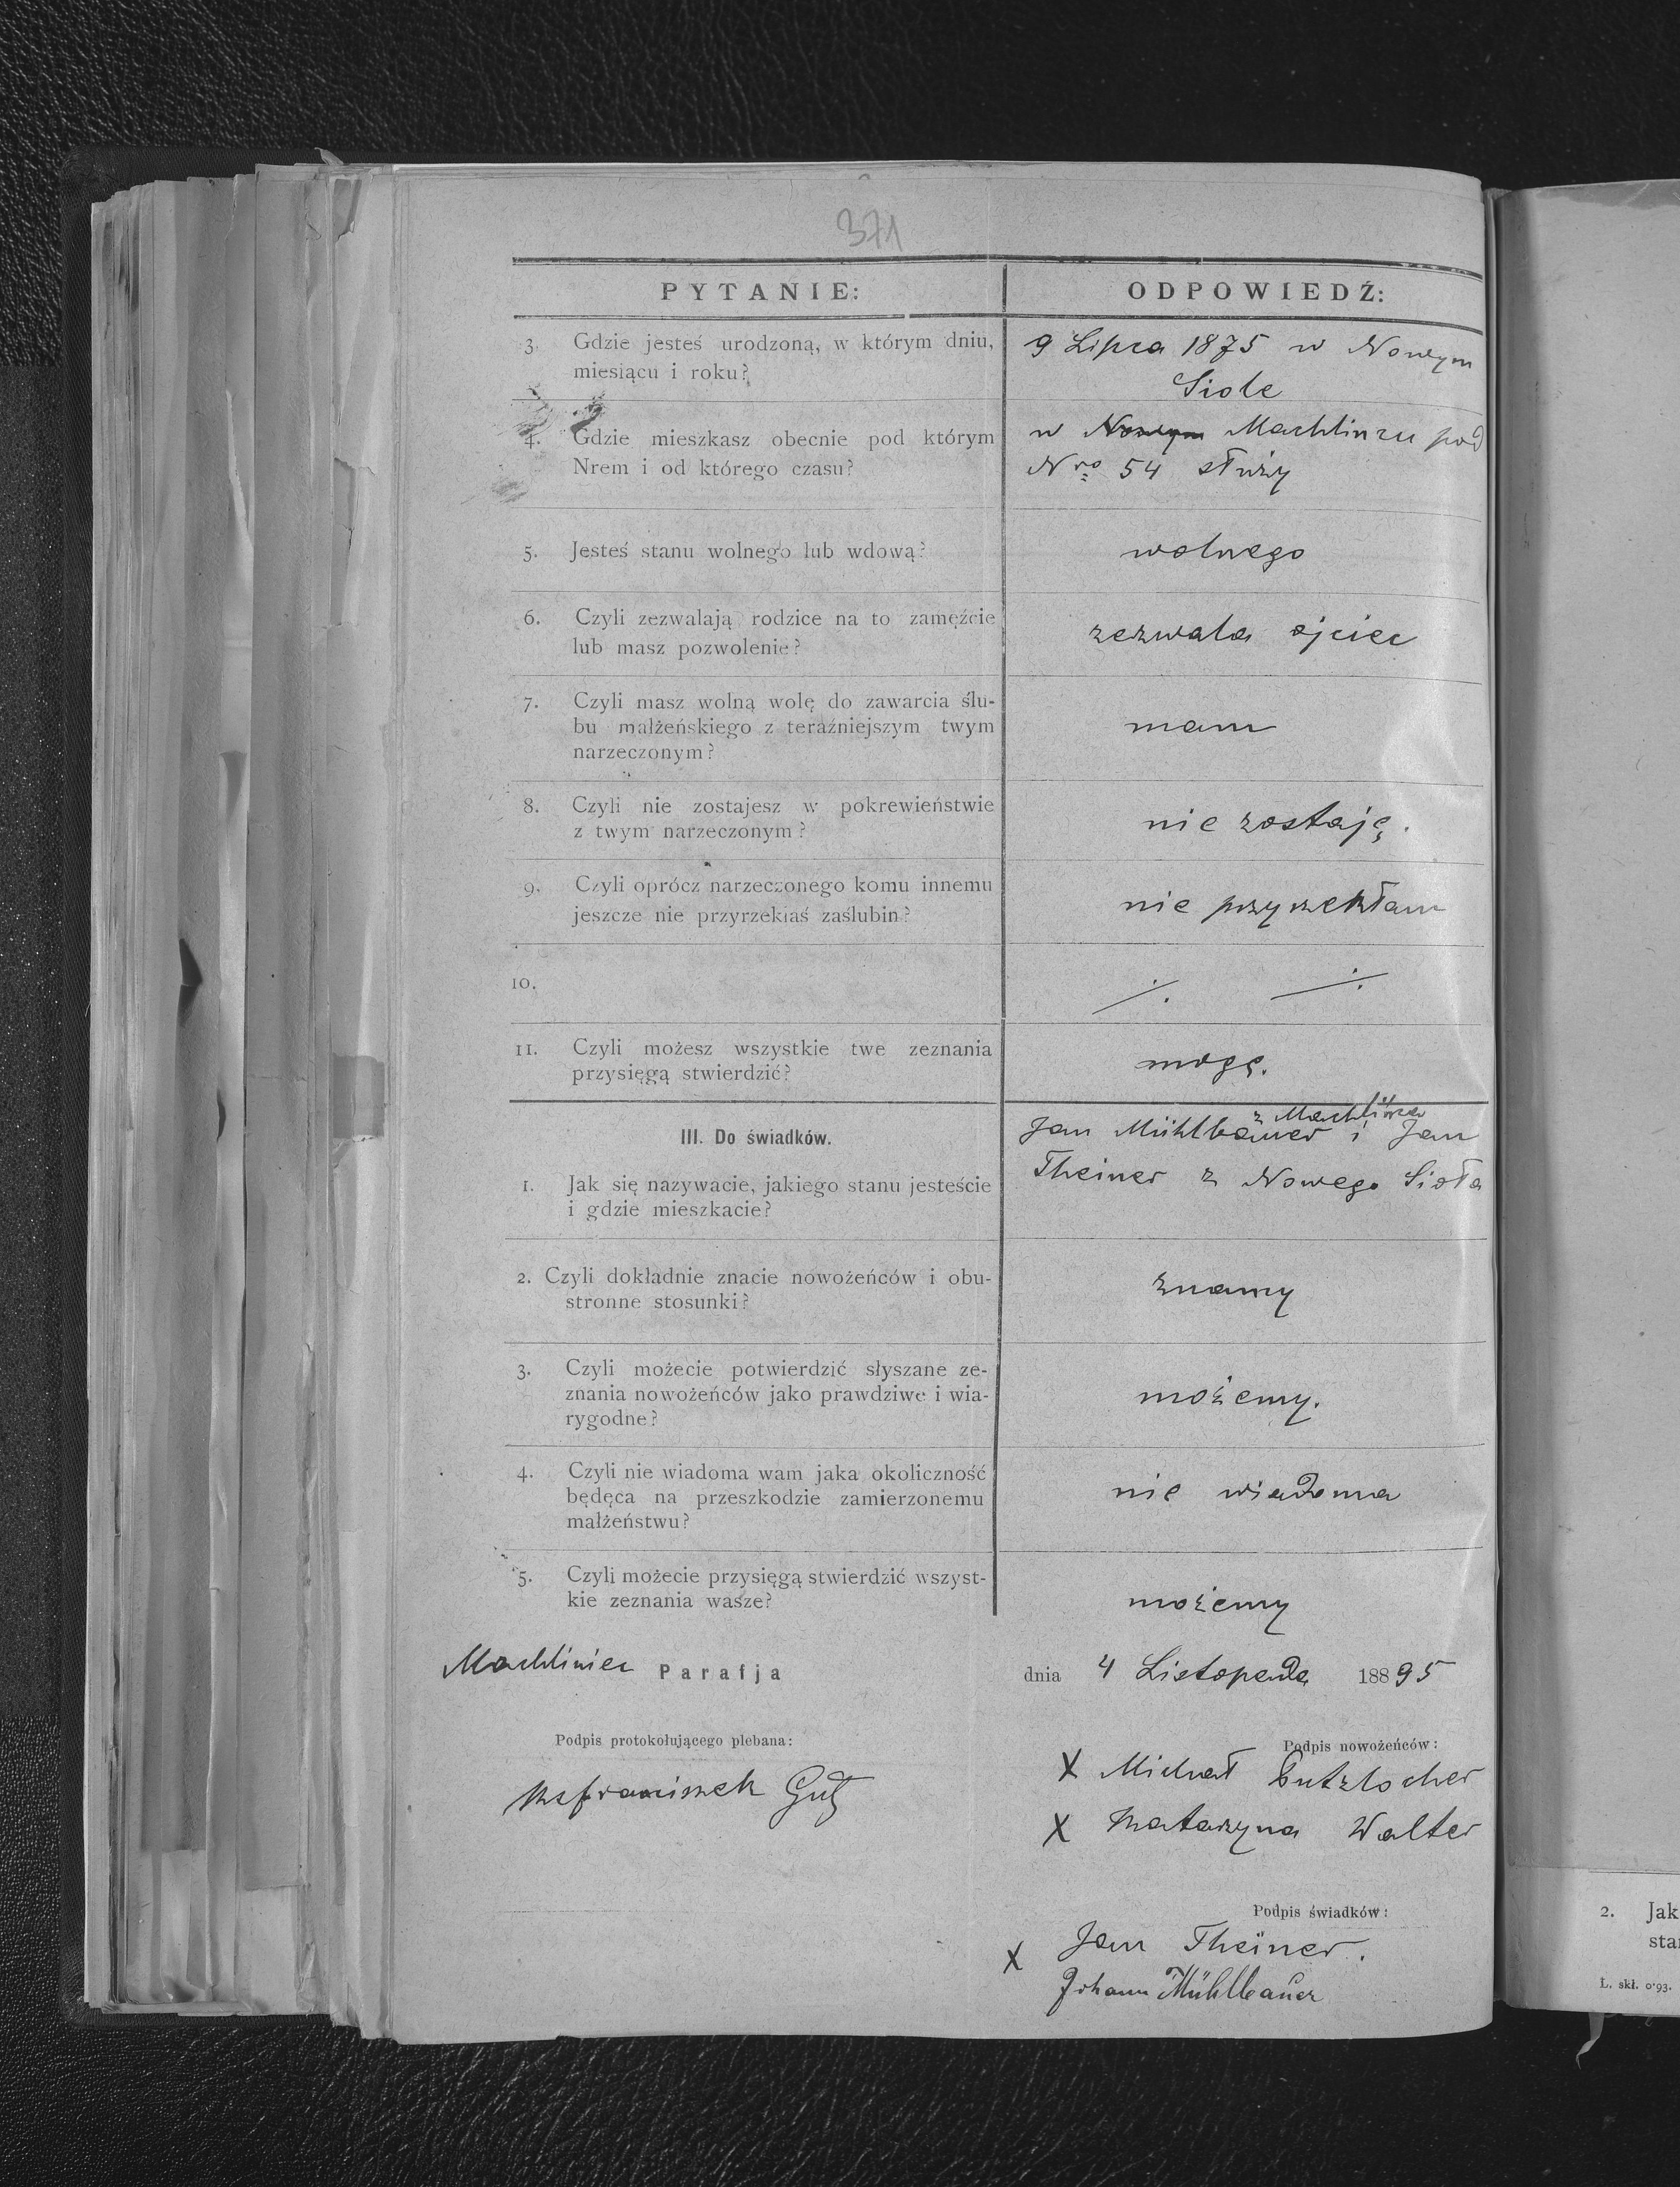 371
PYTANIE:
ODPOWIEDŹ:
3. Gdzie jesteś urodzoną, w którym dniu,
miesiącu i roku?
9 Lipca 1875 w Nowym
Siole
4. Gdzie mieszkasz obecnie pod którym
Nrem i od którego czasu?
w Nowym Machlińcu pod
Nro 54 służy
5. Jesteś stanu wolnego lub wdową?
wolnego
6. Czyli zezwalają rodzice na to zamęźcie
lub masz pozwolenie?
zezwala ojciec
7. Czyli masz wolną wolę do zawarcia ślu-
bu małżeńskiego z teraźniejszym twym
narzeczonym?
mam
8. Czyli nie zostajesz w pokrewieństwie
z twym narzeczonym?
nie zostaję.
9. Czyli oprócz narzeczonego komu innemu
jeszcze nie przyrzekłaś zaślubin?
nie przyrzekłam
10.
11. Czyli możesz wszystkie twe zeznania
przysięgą stwierdzić?
mogę.
III. Do świadków.
1. Jak się nazywacie, jakiego stanu jesteście
i gdzie mieszkacie?
z Machlińca
Jan Mühlbauer i Jan
Theiner z Nowego Sioła
2. Czyli dokładnie znacie nowożeńców i obu-
stronne stosunki?
znamy
3. Czyli możecie potwierdzić słyszane ze-
znania nowożeńców jako prawdziwe i wia-
rygodne?
możemy.
4. Czyli nie wiadoma wam jaka okoliczność
będęca na przeszkodzie zamierzonemu
małżeństwu?
nie wiadoma
5. Czyli możecie przysięgą stwierdzić wszyst-
kie zeznania wasze?
możemy
Machliniec Parafja
dnia 4 Listopada 18895
Podpis protokołującego plebana:
Ks Franciszek
Podpis nowożeńców:
X Michał
X Katarzyna Walter
Podpis świadków:
X Jan Theiner.
Johann Mühlbauer
2. Jak
sta
L. skł. 0·93.